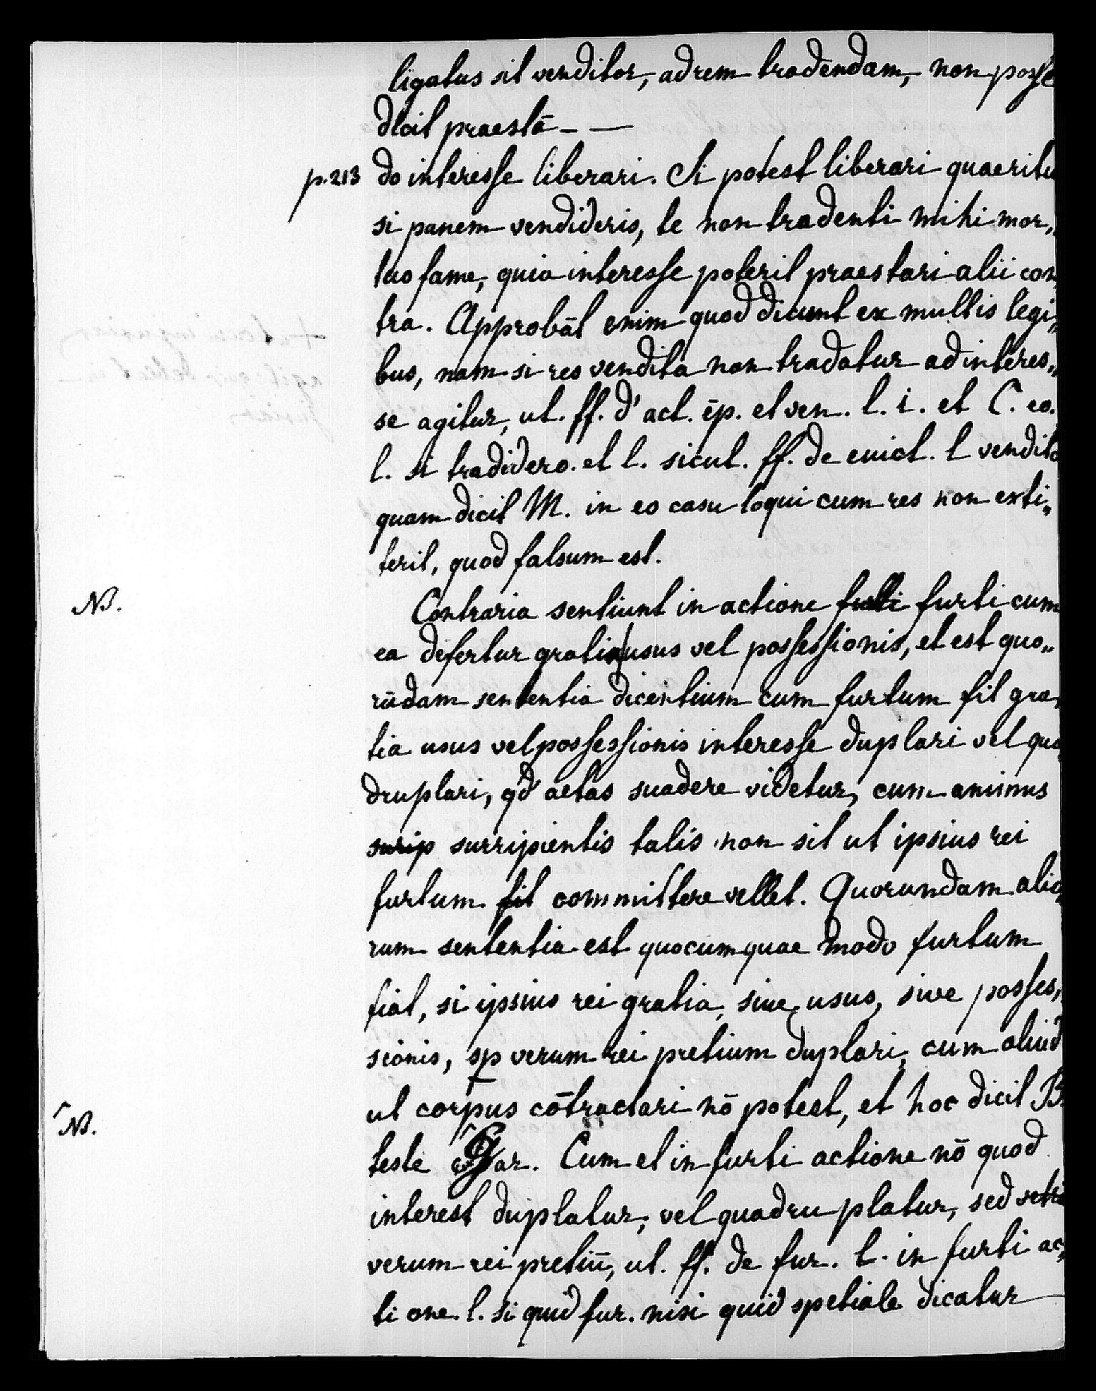 ligatus sit venditor, ad rem tradendam, non posse
dicit praestā - —
p. 213 do interesse liberari. Si potest liberari quaeritu
si panem vendideris, te non tradenti mihi mor„
tuo fame, quia interesse poterit praestari alii con
tra. Approbāt enim quod dicunt ex multis legi„
bus, nam si res vendita non tradatur ad interes„
se agitur, ut. ff. d' act. ēp. et ven. l. i. et C. eo.
l. si tradidero. et l. sicut. ff. de evict. l vendita
quam dicit M. in eo casu loqui cum res non exti„
terit, quod falsum est.
NB. Contraria sentiunt in actione furti furti cum
ea defertur gratia usus vel possessionis, et est quo„
rūdam sententia dicentium cum furtum fit gra„
tia usus vel possessionis interesse duplari vel qua
druplari, qd aetas suadere videtur, cum animus
surip surripientis talis non sit ut ipsius rei
furtum fit committere vellet. Quorundam alio
rum sententia est quocumquae modo furtum
fiat, si ipsius rei gratia, sive usus, sive posses„
sionis, sp verum rei pretium duplari, cum aliud
NB. ut corpus cōtractari nō potest, et hoc dicit B
teste Gar. Cum et in furti actione nō quod
interest duplatur, vel quadruplatur, sed
verum rei pretiū, ut. ff. de fur. l. in furti ac„
tione. l. si quid fur. nisi quid spetiale dicatur